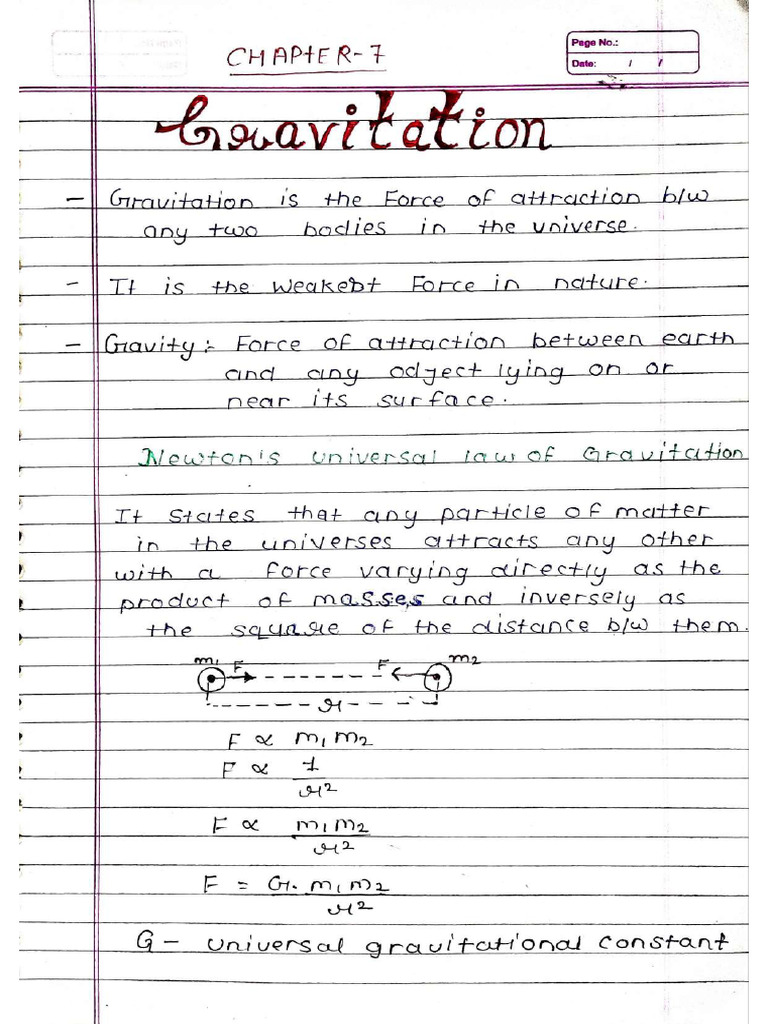 CHAPtER-7
Page No.:
Date: / /
Gravitation
- Gravitation is the Force of attraction b/w
any two bodies in the universe.
- It is the weakest Force in nature.
- Gravity:- Force of attraction between earth
and any odject lying on or
near its surface.
Newton's universal law of Gravitation
It states that any particle of matter
in the universes attracts any other
with a force varying directly as the
product of masses and inversely as
the square of the distance b/w them.
m1 F F m2
r
F ∝ m1 m2
F ∝ 1
r²
F ∝ m1m2
r²
F = G. m1m2
r²
G - universal gravitational constant